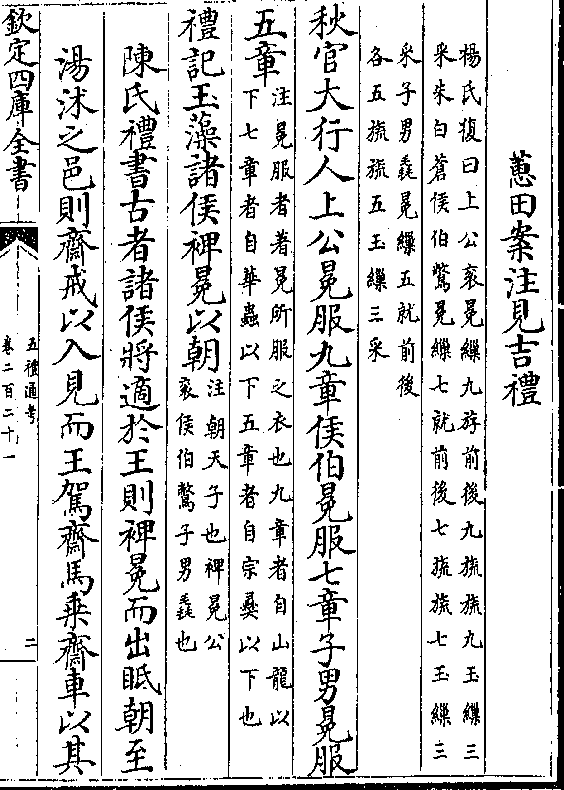 蕙田案注見吉禮
楊氏復曰上公衮冕繅九斿前後九旒旒九玉繅三
采朱白蒼侯伯鷩冕繅七就前後七旒旒七玉繅三
采子男毳冕繅五就前後
各五旒旒五玉繅三采
秋官大行人上公冕服九章侯伯冕服七章子男冕服
五章
注冕服者著冕所服之衣也九章者自山龍以
下七章者自華蟲以下五章者自宗彝以下也
禮記玉藻諸侯裨冕以朝
注朝天子也裨冕公
衮侯伯鷩子男毳也
陳氏禮書古者諸侯將適於王則裨冕而出眂朝至
湯沐之邑則齋戒以入見而王駕齋馬乗齋車以其
欽定四庫全書
五禮通考
卷二百二十一
二